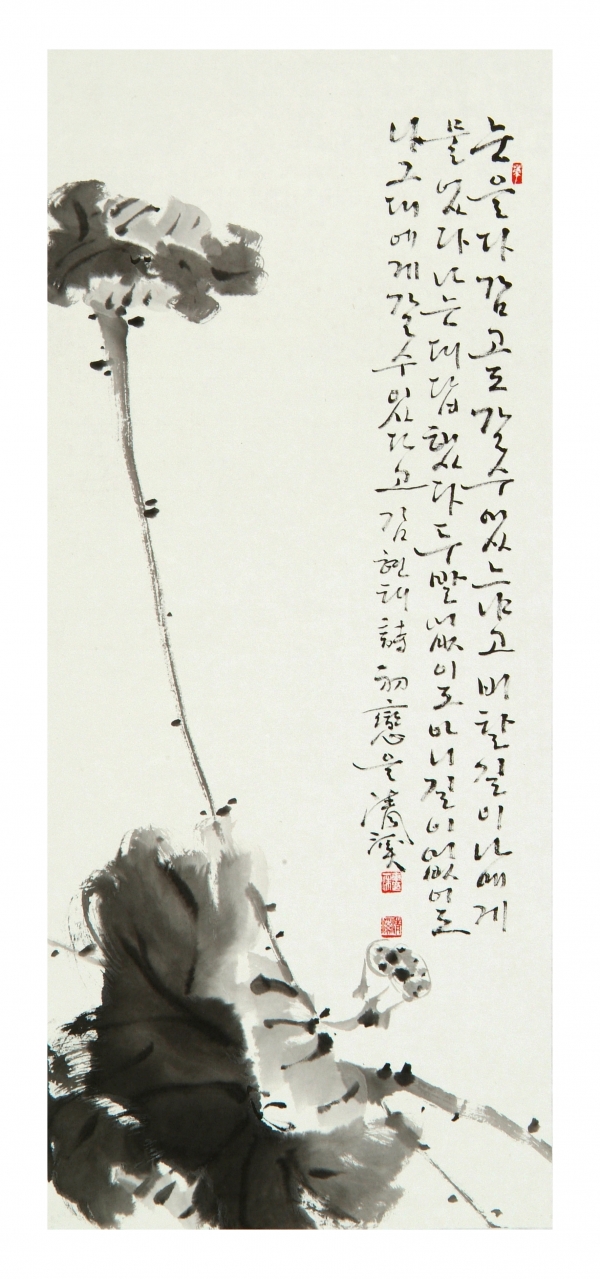 눈을다감고도갈수있느냐고비탈길이나에게
물었다나는대답했다두발없이도아니길이없어도
나그대에게갈수있다고 김현태 詩 初戀을 淸溪